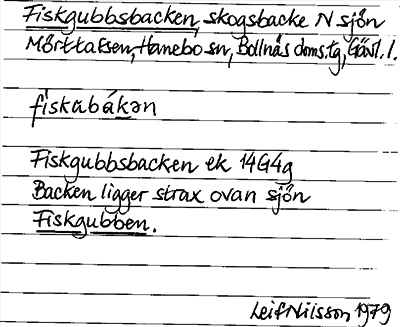 Fiskgubbsbacken, skogsbacke N sjön
Mörttaksen, Hanebo sn, Bollnäs doms.tg, Gävl. l.
fiskubákən
Fiskgubbsbacken ek 14G4g
Backen ligger strax ovan sjön
Fiskgubben.
Leif Nilsson 1979